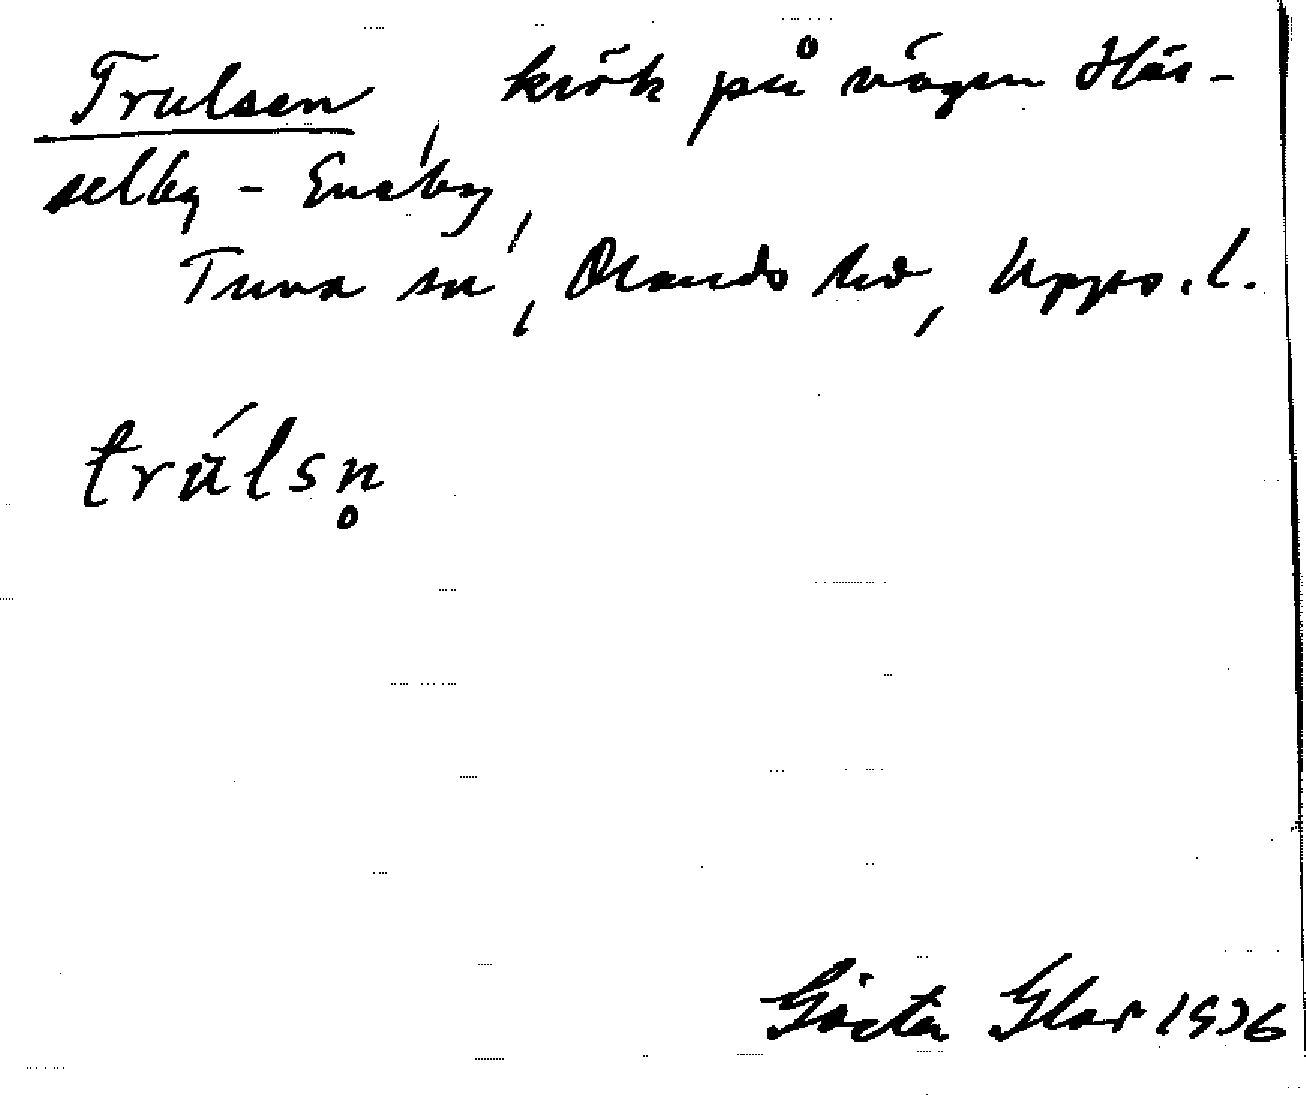 Trulsen, krök på vägen Häs-
selby - Eneby,
Tuna sn, Olands hd, Upps. l.
trúlsn̥
Gösta Glar 1936